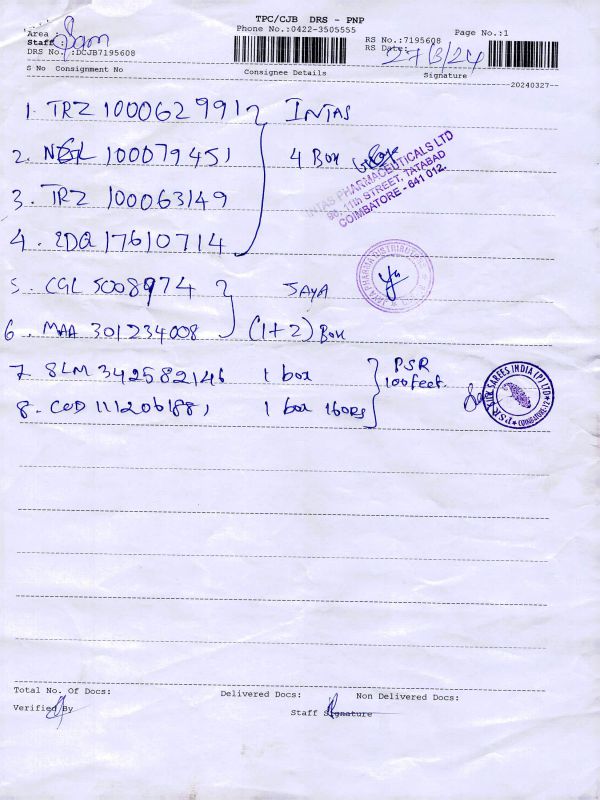 TPC/CJB DRS - PNP
Phone No.:0422-3505555
Area :
Staff
DRS No.:DCJB7195608
RS No.:7195608
RS Date:
27/3/24
Page No.:1
S No Consignment No
Consignee Details
Signature
20240327
1. TRZ 100062991 INTAS
2. 100079451 4 Box
INTAS PHARMACEUTICALS LTD
90, 11th STREET, TATABAD
COIMBATORE - 641 012.
3. TRZ 100063149
4. ZDQ 17610714
5. CGL 5008974 JAYA
6. MAA 301234008 (1+2) Box
7. SLM 342582146 1 box PSR
100 feet
8. COD 111206188 1 box
PSR SILK SAREES INDIA (P) LTD
COIMBATORE-12
Total No. Of Docs:
Delivered Docs:
Non Delivered Docs:
Verified By
Staff Signature